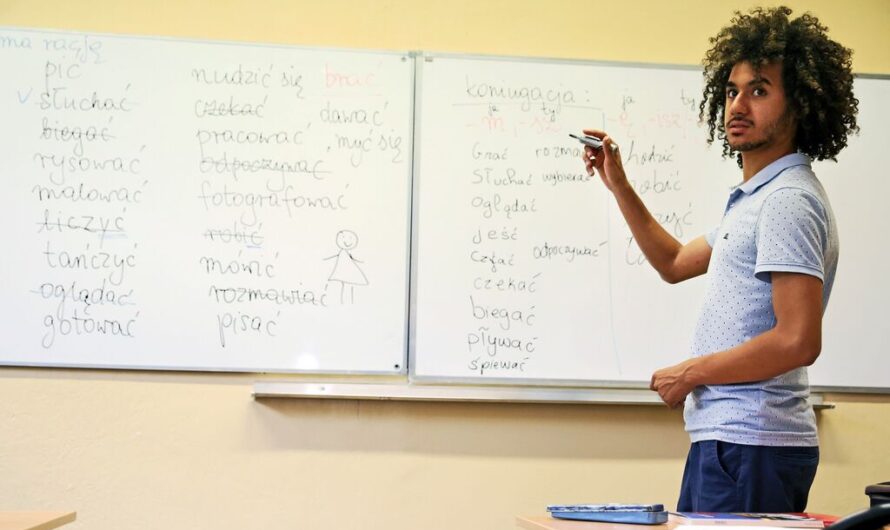 ma rację
pić
słuchać
biegać
rysować
malować
liczyć
tańczyć
oglądać
gotować
nudzić się
czekać
pracować
odpoczywać
fotografować
robić
mówić
rozmawiać
pisać
brać
, dawać
, myć się
koniugacja:
ja ty ja ty
-m, -sz -ę, -isz,
grać rozma
słuchać wybierać
oglądać
jeść
czytać odpoczywać
czekać
biegać
pływać
śpiewać
hodzić
obić